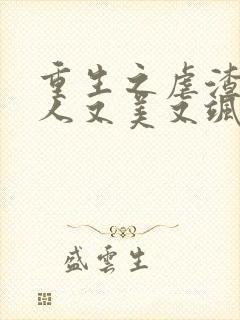 重生之虐渣
人又美又飒
盛雲生